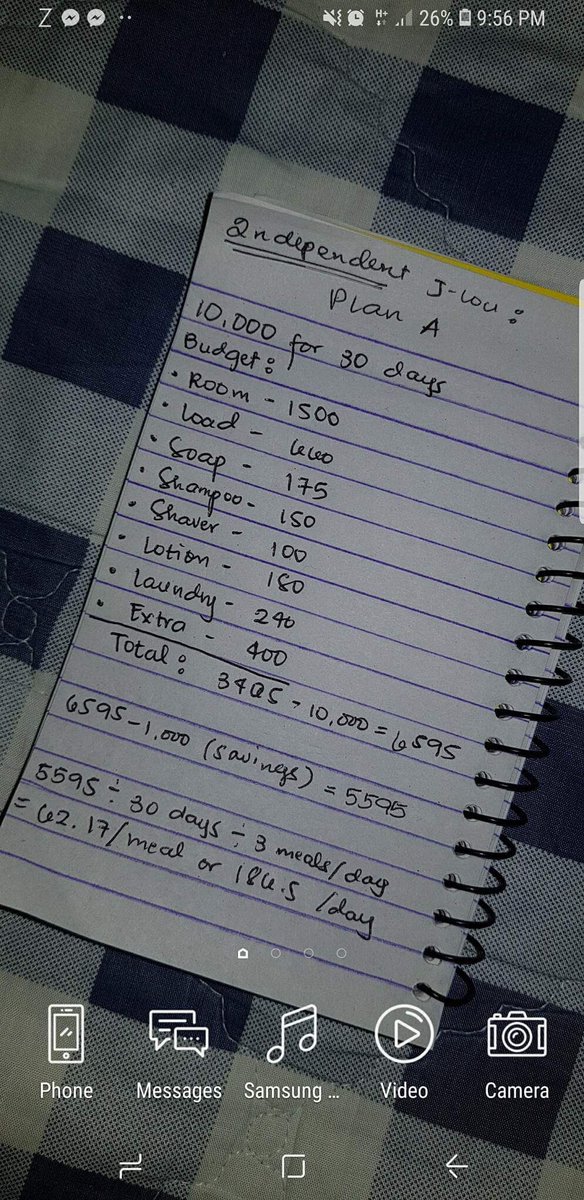 Z 26% 9:56 PM
Independent J-Lou:
Plan A
10,000 for 30 days
Budget:
• Room - 1500
• Load - 660
• Soap - 175
• Shampoo - 150
• Shaver - 100
• Lotion - 180
• Laundry - 240
• Extra - 400
Total: 3405 - 10,000 = 6595
6595 - 1,000 (savings) = 5595
5595 ÷ 30 days ÷ 3 meals/day
= 62.17/meal or 186.5 /day
Phone Messages Samsung ... Video Camera